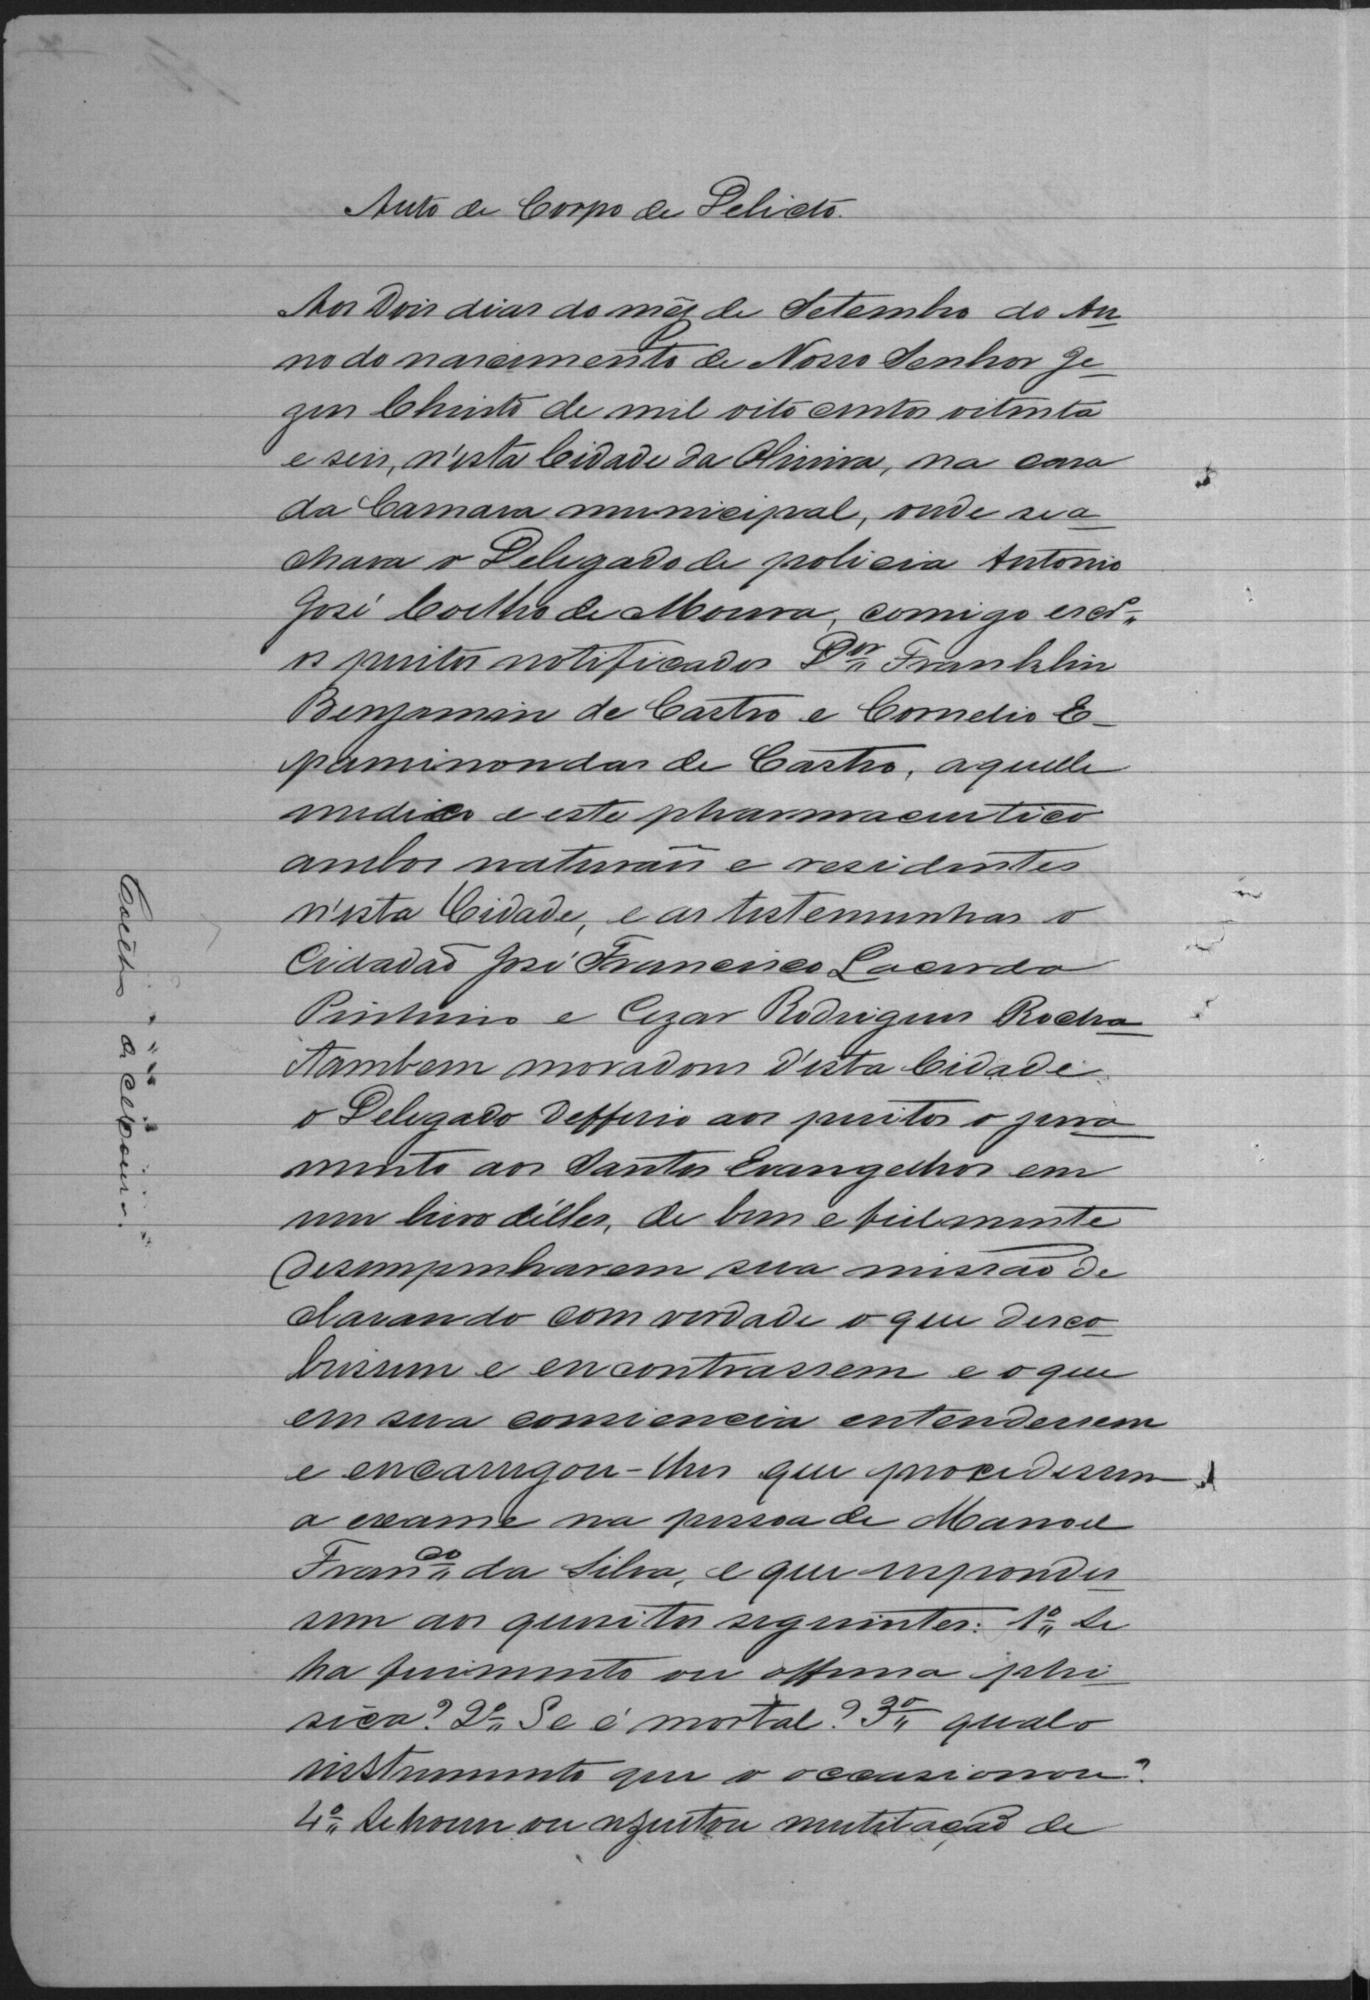 Auto de Corpo de Delicto.
Aos Dois dias do mês de Setembro do An
no do nascimento de Nosso Senhor Je-
zus Christo de mil oito centos oitenta
e seis, n'esta Cidade da Oliveira, na casa
da Camara municipal, onde se a
chava o Delegado de policia Antonio
José Coelho de Moura, comigo escr.ᵐ
os peritos notificados Dᵒʳ Franklin
Benjamin de Castro e Cornelio E-
paminondas de Castro, aquelle
medico e este pharmaceutico
ambos naturais e residentes
n'esta Cidade, e as testemunhas o
Cidadaõ José Francisco Lacerda
Pinheiro e Cezar Rodrigues Rocha
tambem moradores d'esta Cidade
o Delegado defferio aos peritos o jura
mento aos Santos Evangelhos em
um livro d'elles, de bem e fielmente
desempenharem sua missaõ de
clarando com verdade o que desco-
brissem e encontrassem e o que
em sua consiencia entendessem
e encarregou-lhes que procedessem
a exame na pessoa de Manoel
Franᶜᵒ da Silva, e que respondes
sem aos quesitos seguintes: 1º Se
ha ferimento ou offensa phi
sica? 2º Se é mortal? 3º qual o
instrumento que o occasionou?
4º Se houve ou rezultou mutilaçaõ de
Coelho de Moura.